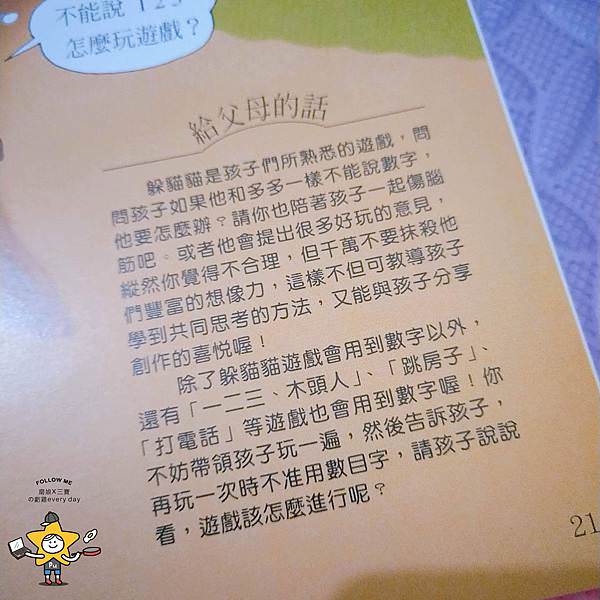 不能說 1 2 3
怎麼玩遊戲？
給父母的話
躲貓貓是孩子們所熟悉的遊戲，問
問孩子如果他和多多一樣不能說數字，
他要怎麼辦？請你也陪著孩子一起傷腦
筋吧。或者他會提出很多好玩的意見，
縱然你覺得不合理，但千萬不要抹殺他
們豐富的想像力，這樣不但可教導孩子
學到共同思考的方法，又能與孩子分享
創作的喜悅喔！
除了躲貓貓遊戲會用到數字以外，
還有「一二三、木頭人」、「跳房子」、
「打電話」等遊戲也會用到數字喔！你
不妨帶領孩子玩一遍，然後告訴孩子，
再玩一次時不准用數目字，請孩子說說
看，遊戲該怎麼進行呢？
21
FOLLOW ME
の齁雞every day
Pu